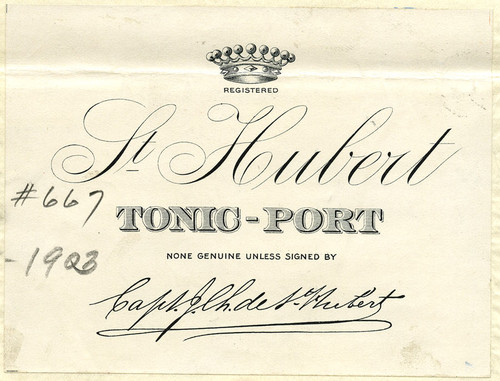 REGISTERED
St Hubert
#667
TONIC-PORT
-1903
NONE GENUINE UNLESS SIGNED BY
Capt. J. Ch. de St. Hubert